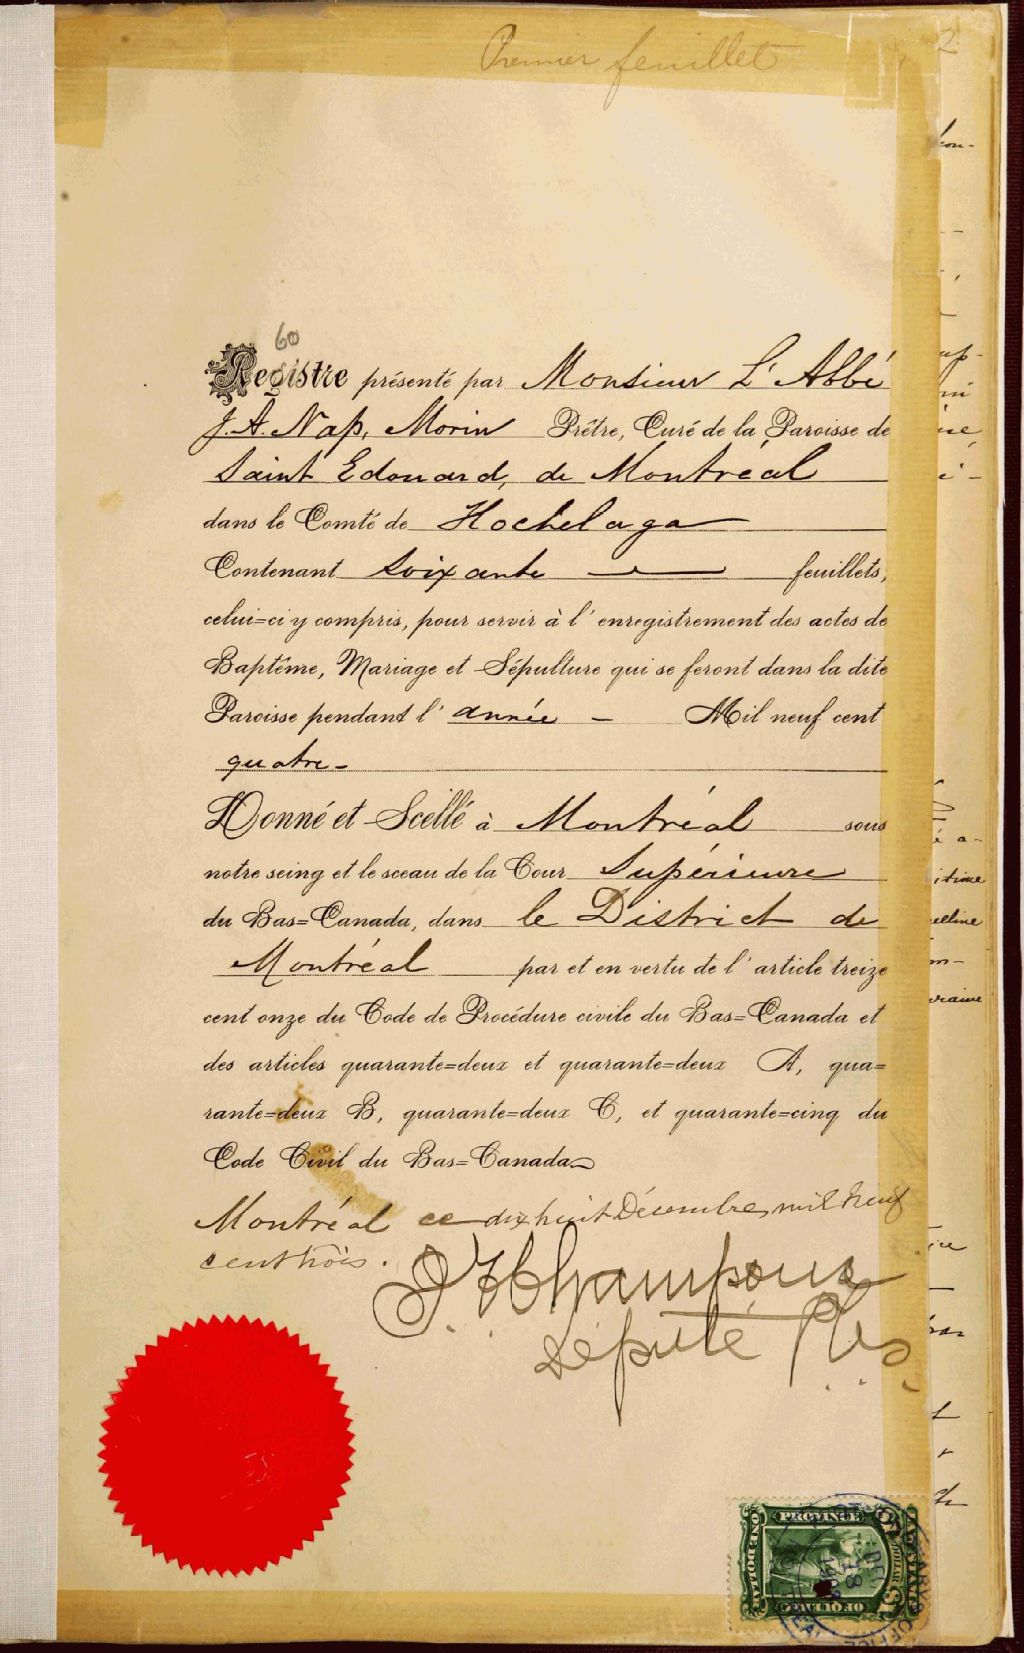 Premier feuillet
2
60
Registre présenté par Monsieur L'Abbé
J. A. Nap, Morin Prêtre, Curé de la Paroisse de
Saint Edouard, de Montréal
dans le Comté de Hochelaga
Contenant Soixante feuillets,
celui=ci y compris, pour servir à l'enregistrement des actes de
Baptême, Mariage et Sépulture qui se feront dans la dite
Paroisse pendant l'année — Mil neuf cent
quatre-
Donné et Scellé à Montréal sous
notre seing et le sceau de la Cour Supérieure
du Bas=Canada, dans le District de
Montréal par et en vertu de l'article treize
cent onze du Code de Procédure civile du Bas=Canada et
des articles quarante=deux et quarante=deux A, qua=
rante=deux B, quarante=deux C, et quarante=cinq du
Code Civil du Bas=Canada
Montréal ce dix huit Décembre mil neuf
cent trois.
Champoux
Député
PROVINCE
ONE DOLLAR
OF QUEBEC
DEC
18
OFFICE